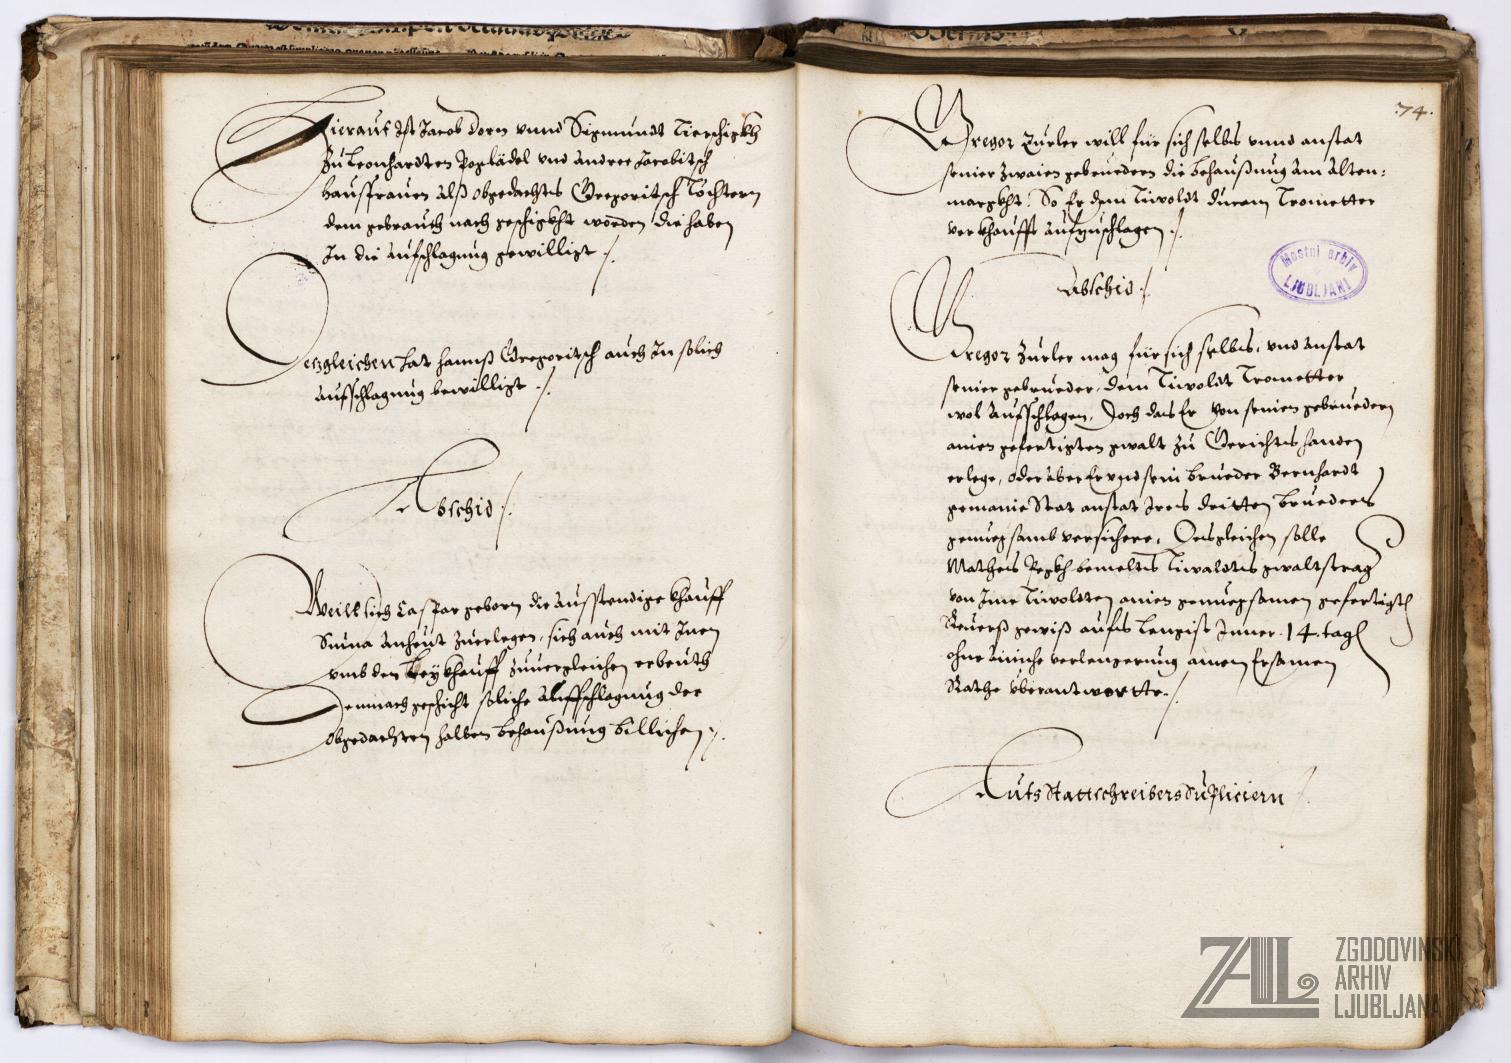 Hierauf Ist Jacob dorn unnd Sigmundt
Zu Leonhardten und Andree Jacobitsch
hausfrauen alß obgedachts Gregoritsch Töchtern
dem gebrauch nach geschigkht worden die haben
In die aufschlagung gewilligt ./.
Desgleichen hat hannß Gregoritsch auch In solich
aufschlagung bewilligt ./.
Abschid ./.
Weill sich Caspar geborn die ausstendige khauff
Suma anheut zuerlegen, sich auch mit Inen
umb den Leykhauff zuvergleichen erbeuth
Demnach geschicht soliche auffschlagung der
obgedachten halben behaußung billichen ./.
74.
Gregor Zurler will für sich selbs unnd anstat
seiner zwaien gebruedern die behaußung am Alten=
margkht, So Er dem Liwoldt Trometter
verkhaufft aufzuschlagen ./.
Mestni arhiv
LJUBLJANI
Abschid ./.
Gregor Zurler mag für sich selbs, und anstat
seiner gebrueder, dem Liwoldt Trometter
wol aufschlagen, Doch das Er von seinen gebruedern
ainen gefertigten gwalt zu Gerichts handen
erlege, oder aber Er und sein brueder Bernhardt
gemaine Stat anstat Ires dritten brueders
genuegsamb versichere, Desgleichen solle
Matheis bemelts gwaltstrag
von Ime Liwoldten ainen genuegsamen gefertigte
Reverß gewiß aufs lengist Inner 14 tag
ohne ainiche verlengerung ainem Ersamen
Rathe überantwortte ./.
Auf Stattschreibers Dupliciern ./.
ZAL
ZGODOVINSKI
ARHIV
LJUBLJANA